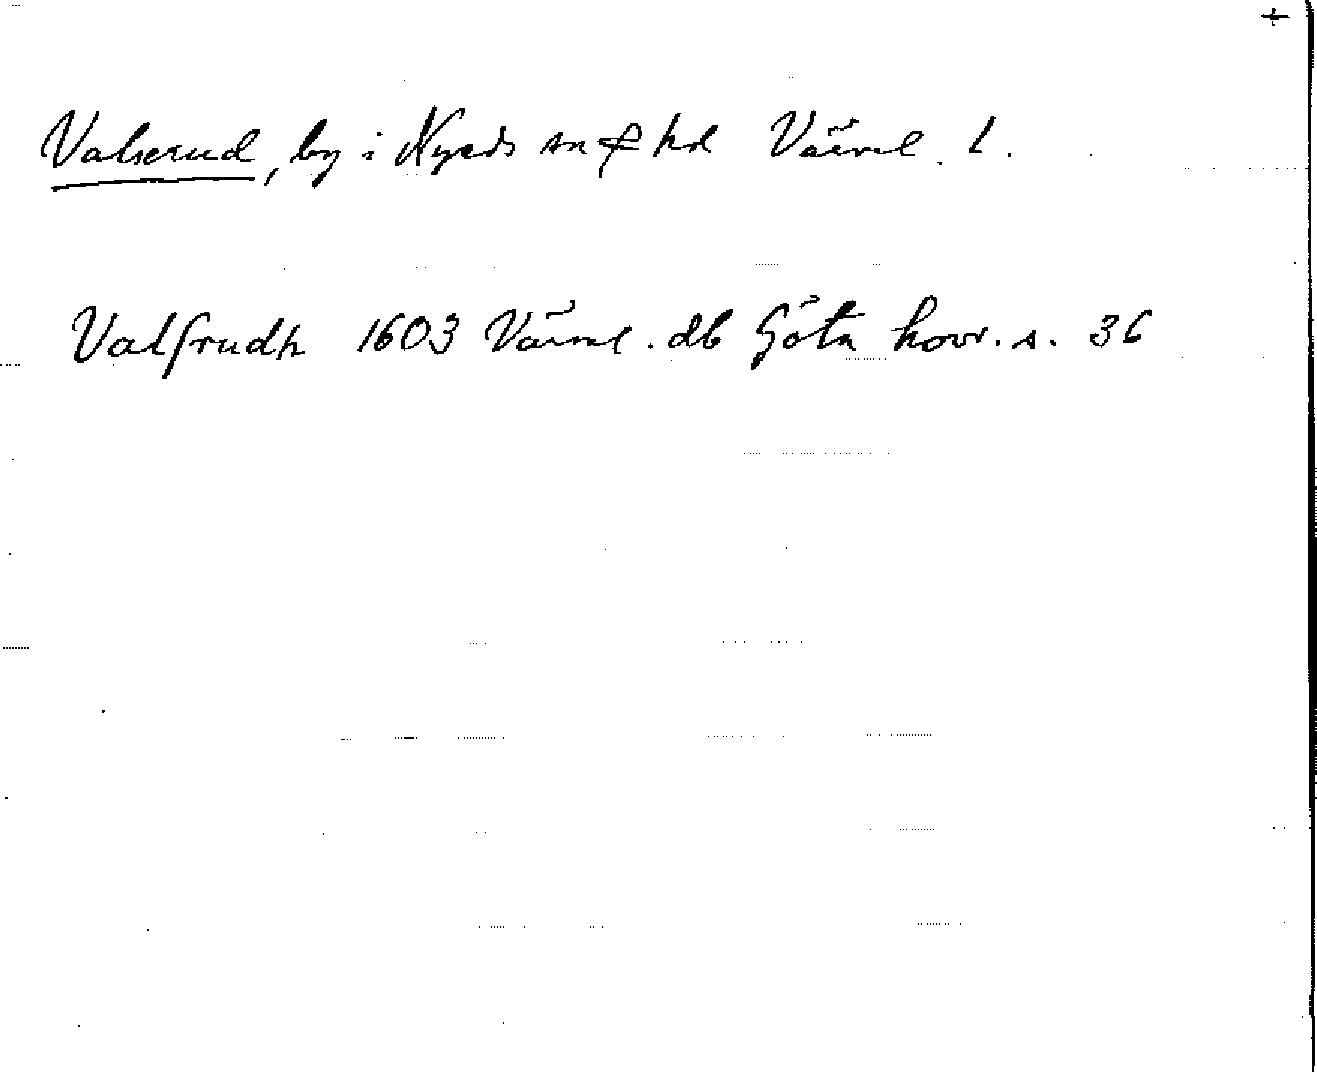 Valserud, by i Nyeds sn & hd Värml. l.
Valsrudh 1603 Värml. db Göta hovr. s. 36